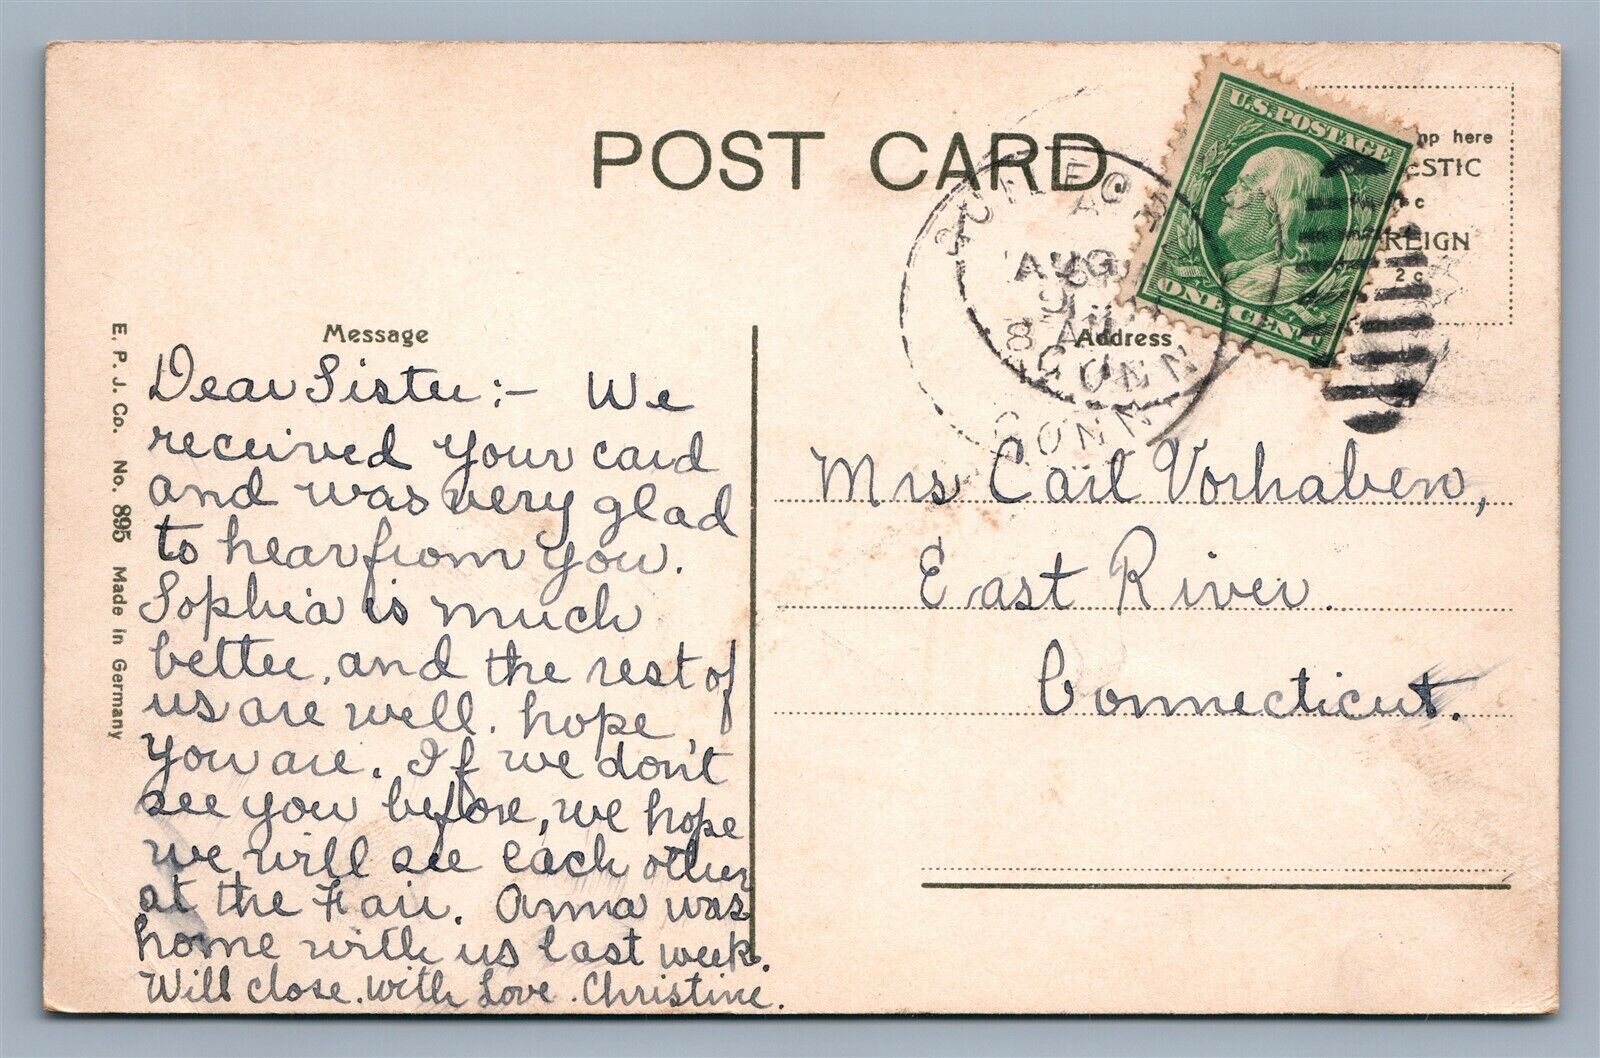 POST CARD
U.S. POSTAGE
ONE CENT
mp here
ESTIC
c
REIGN
2 c
AUG
8 A
CONN
CONN.
Message
Address
E. P. J. Co. No. 895 Made in Germany
Dear Sister:- We
received your card
and was very glad
to hear from you.
Sophia is much
better, and the rest of
us are well. hope
you are. If we don't
see you before, we hope
we will see each other
at the Fair. Anna was
home with us last week.
Will close. with Love. Christine.
Mrs Carl Vorhaben,
East River.
Connecticut.